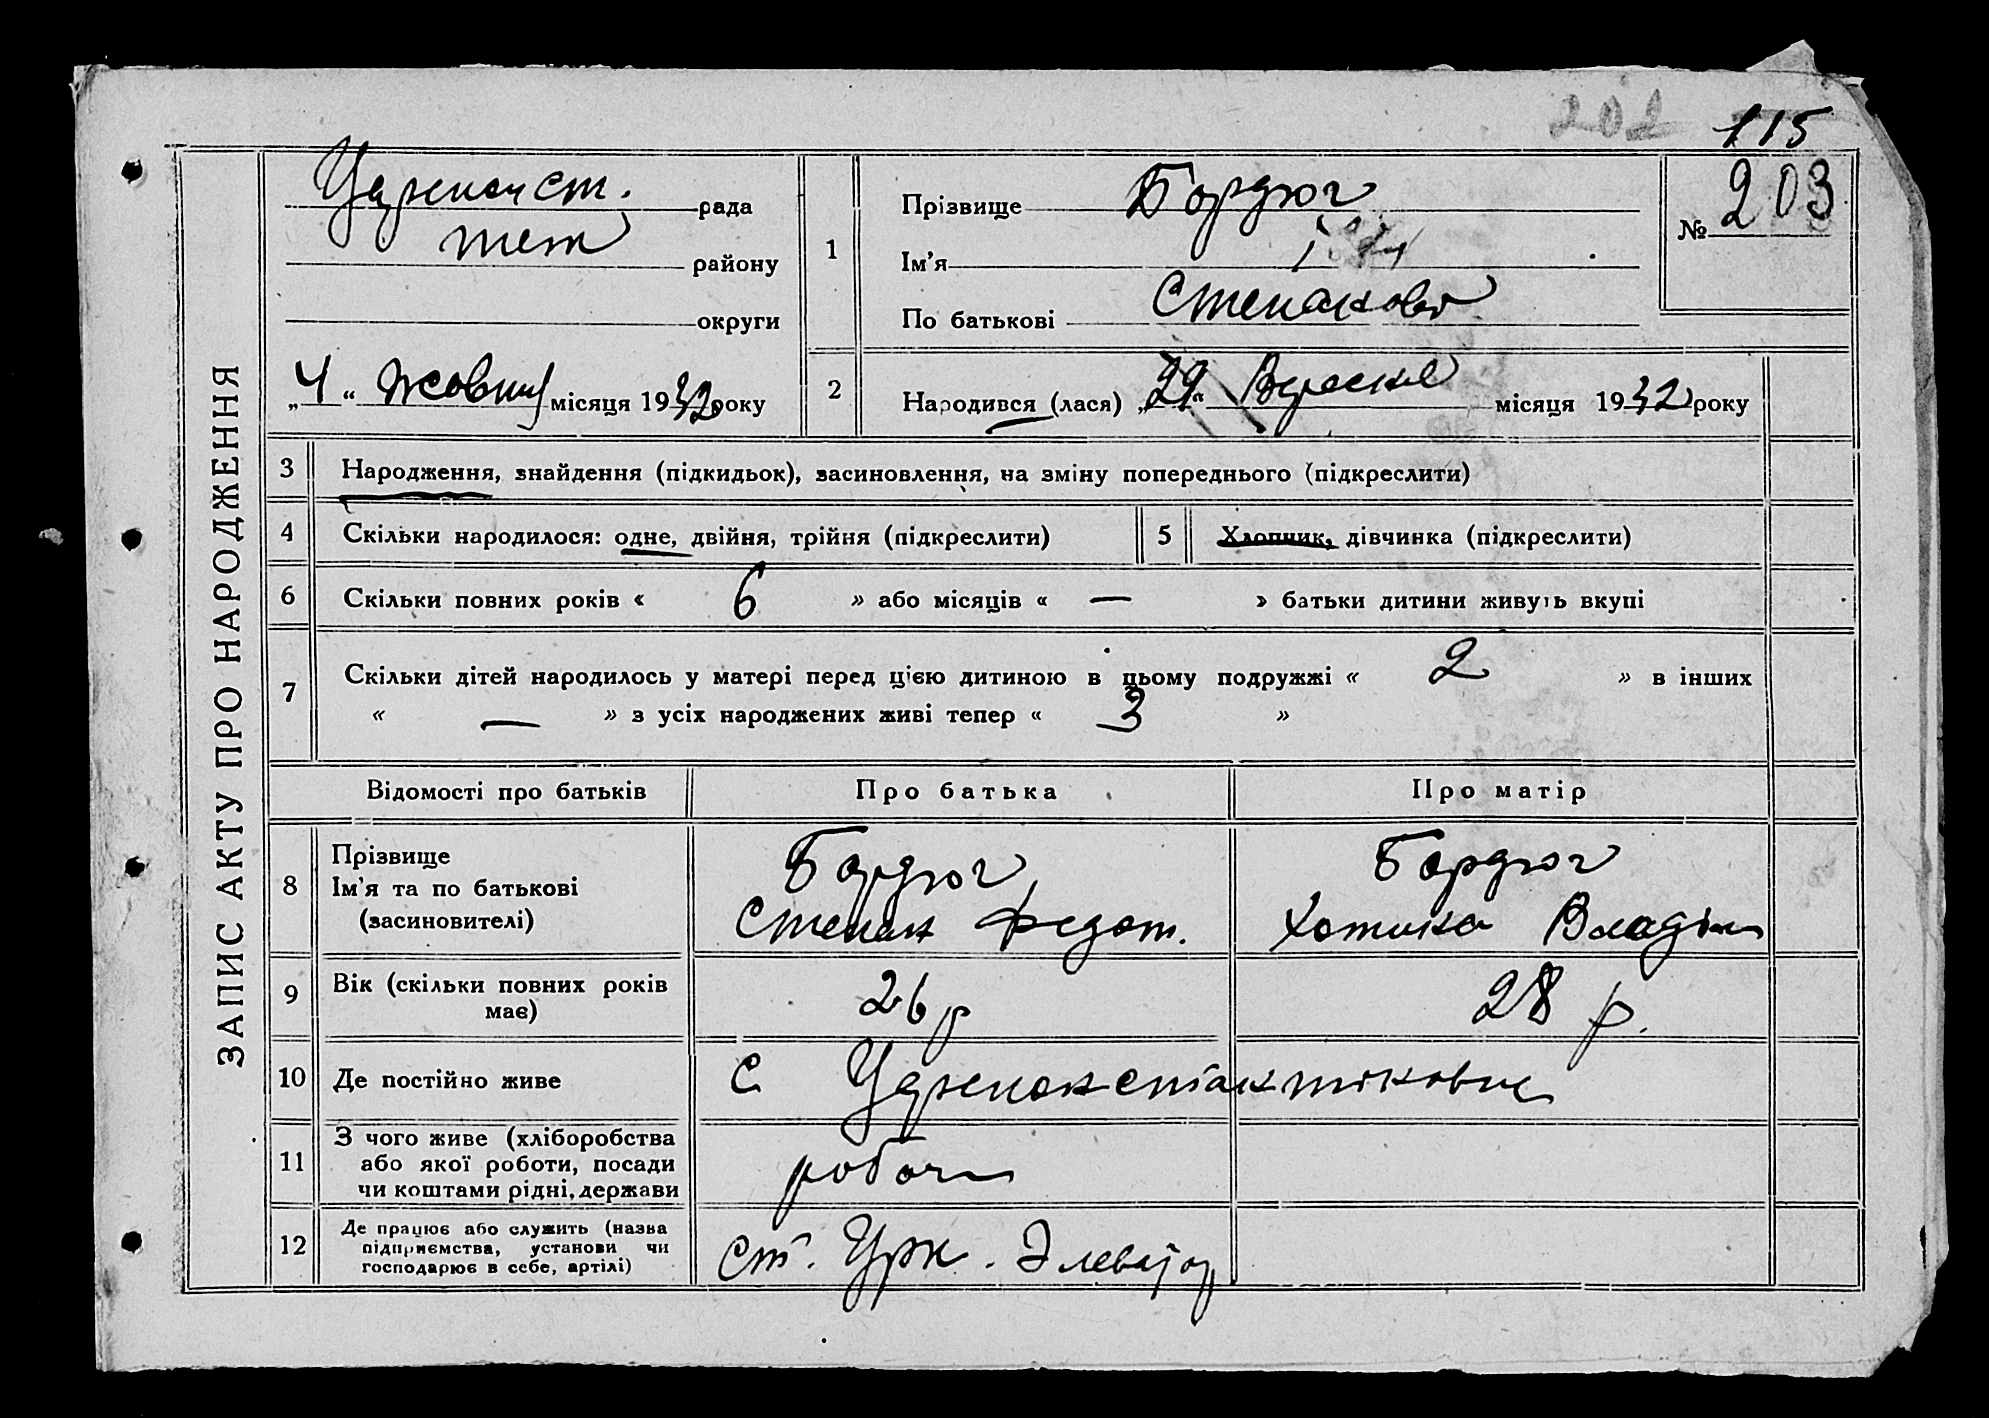 202 115
ЗАПИС АКТУ ПРО НАРОДЖЕННЯ
рада
району
округи
„4“ Жовтня місяця 1932 року
1
Прізвище Бордюг
Ім'я
По батькові Степанов
№ 203
2
Народився (лася) „29“ Вересня місяця 1932 року
3 Народження, знайдення (підкидьок), засиновлення, на зміну попереднього (підкреслити)
4 Скільки народилося: одне, двійня, трійня (підкреслити)
5 Хлопчик, дівчинка (підкреслити)
6 Скільки повних років « 6 » або місяців « — » батьки дитини живуть вкупі
7 Скільки дітей народилось у матері перед цією дитиною в цьому подружжі « 2 » в інших
« — » з усіх народжених живі тепер « 3 »
Відомості про батьків Про батька Про матір
8 Прізвище
Ім'я та по батькові
(засиновителі)
Бордюг
Степан Федот.
Бордюг
Владім
9 Вік (скільки повних років
має)
26 р
28 р.
10 Де постійно живе
с
11 З чого живе (хліборобства
або якої роботи, посади
чи коштами рідні, держави
робоч
12 Де працює або служить (назва
підприємства, установи чи
господарює в себе, артілі)
ст. Элеватор